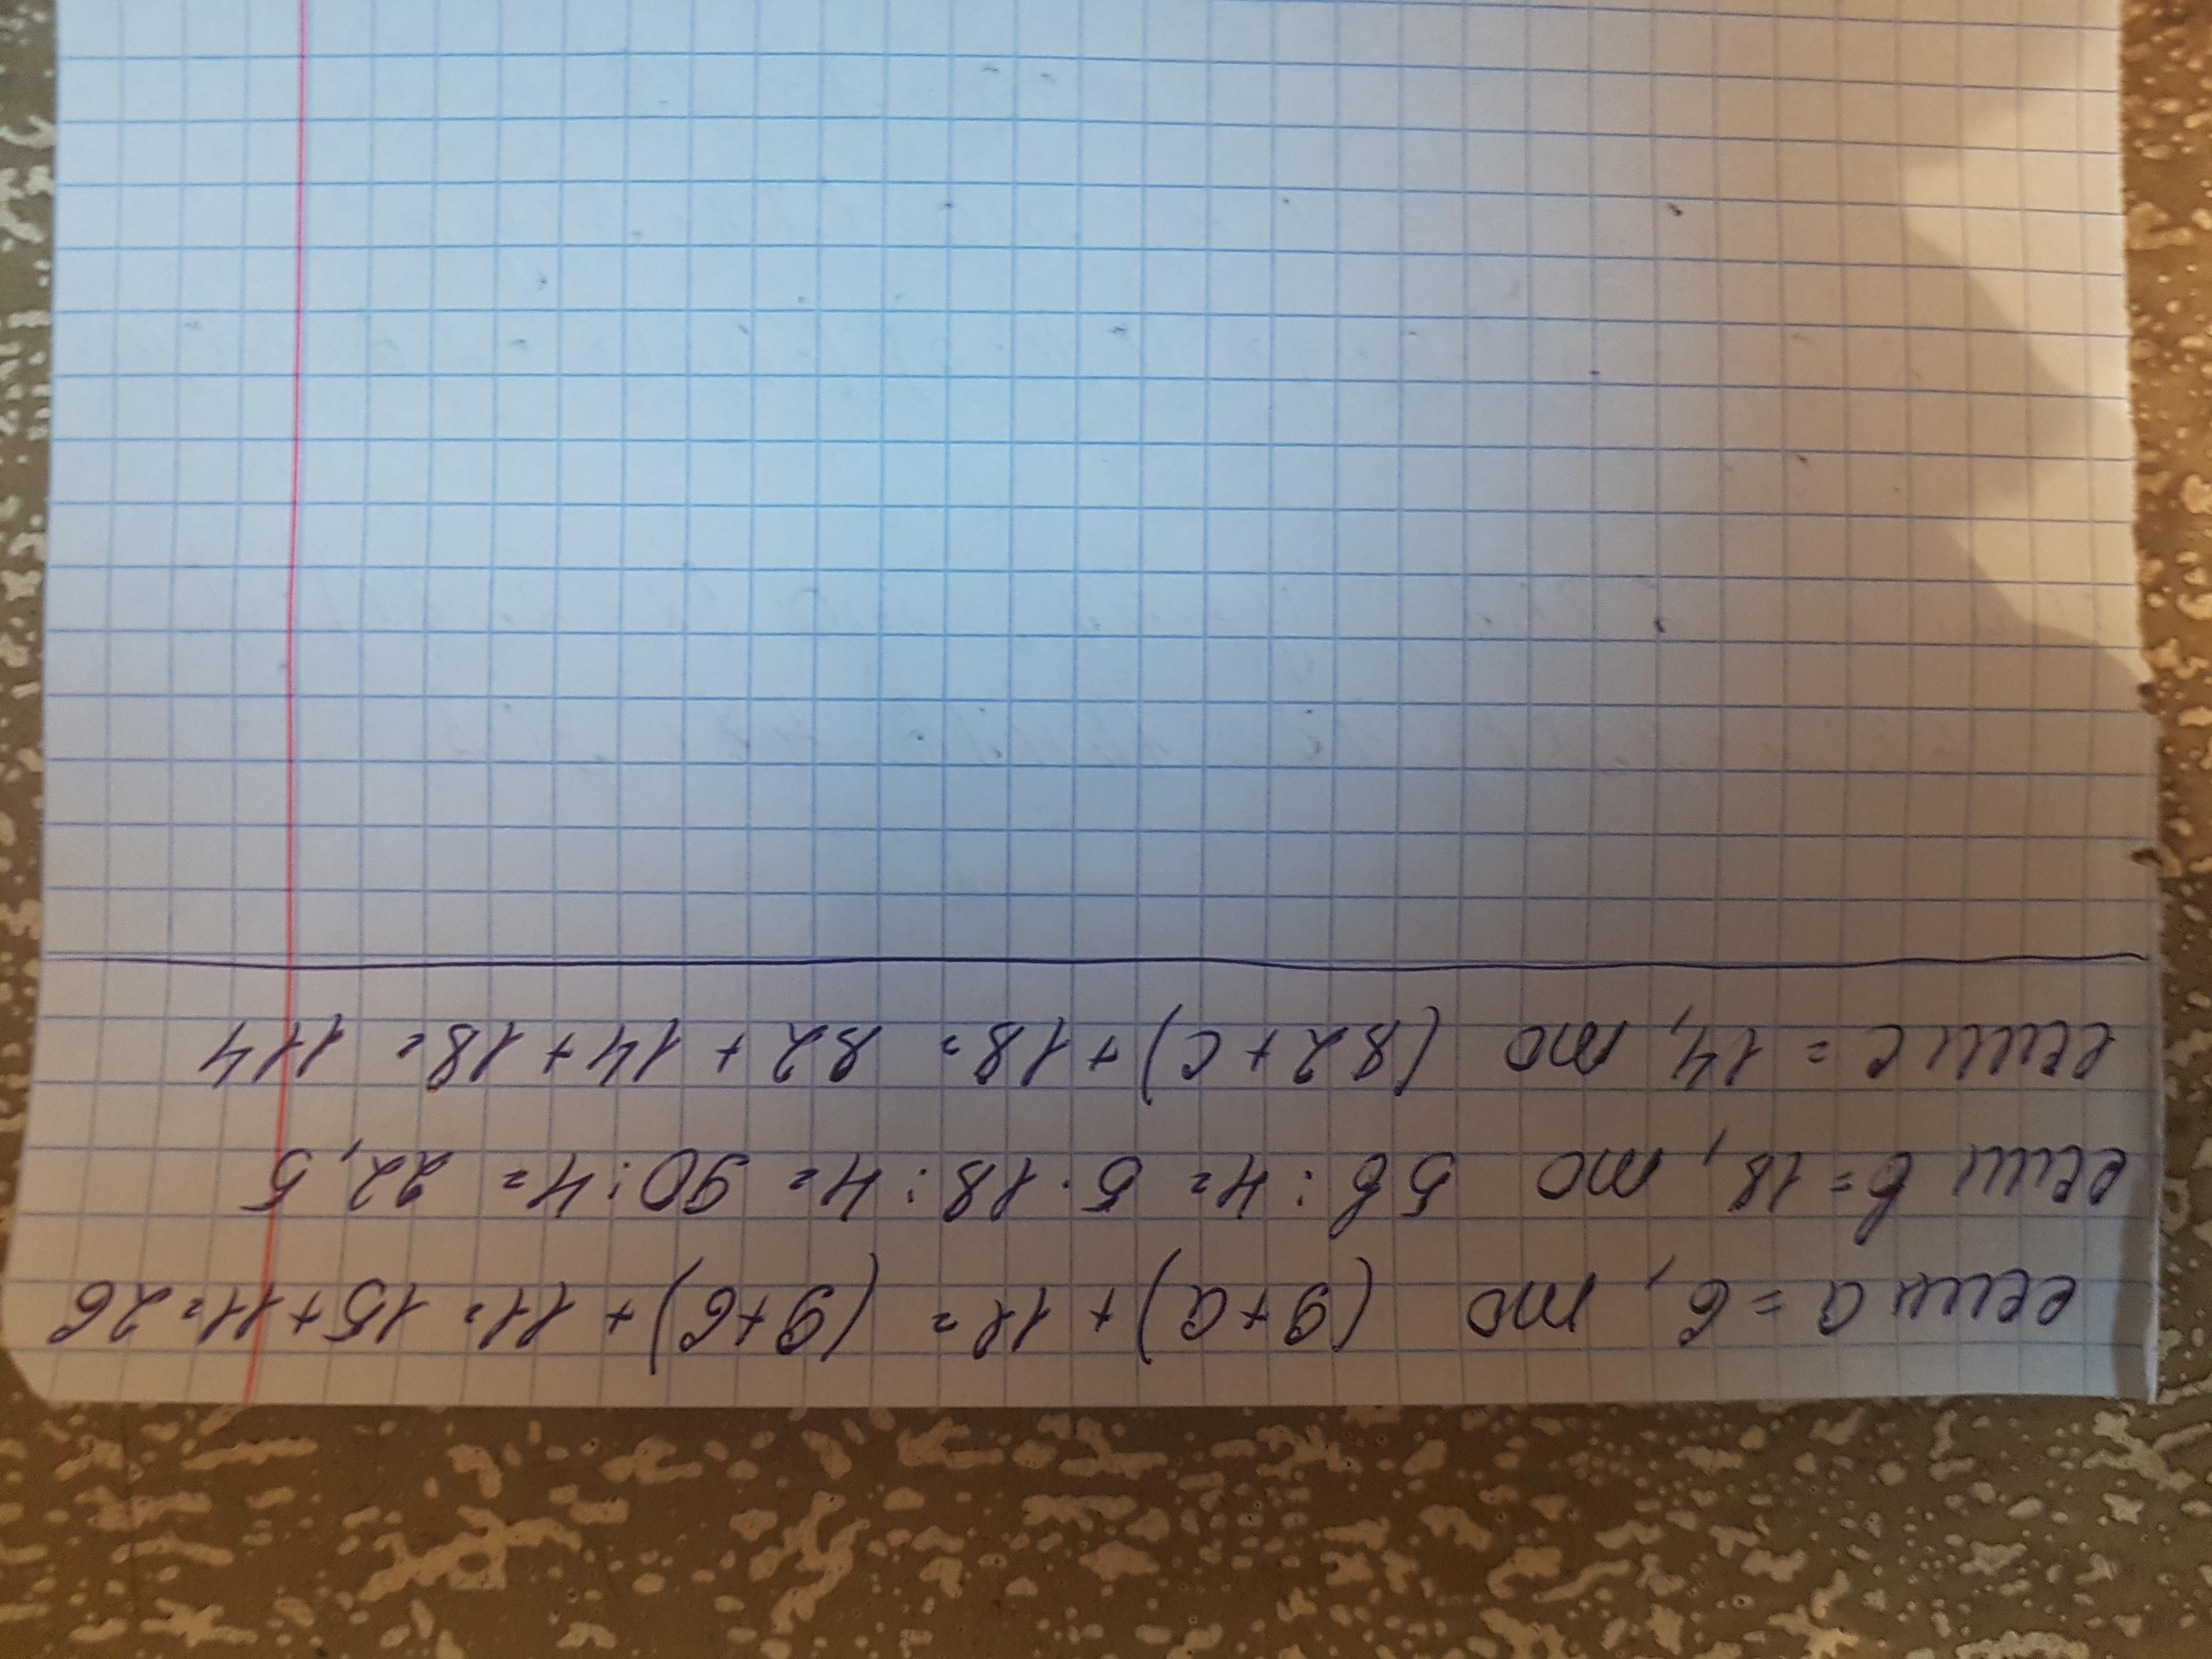 если a = 6, то (9+a) + 11 = (9+6) + 11 = 15 + 11 = 26
если b = 18, то 5b : 4 = 5 · 18 : 4 = 90 : 4 = 22,5
если c = 14, то (82 + c) + 18 = 82 + 14 + 18 = 114